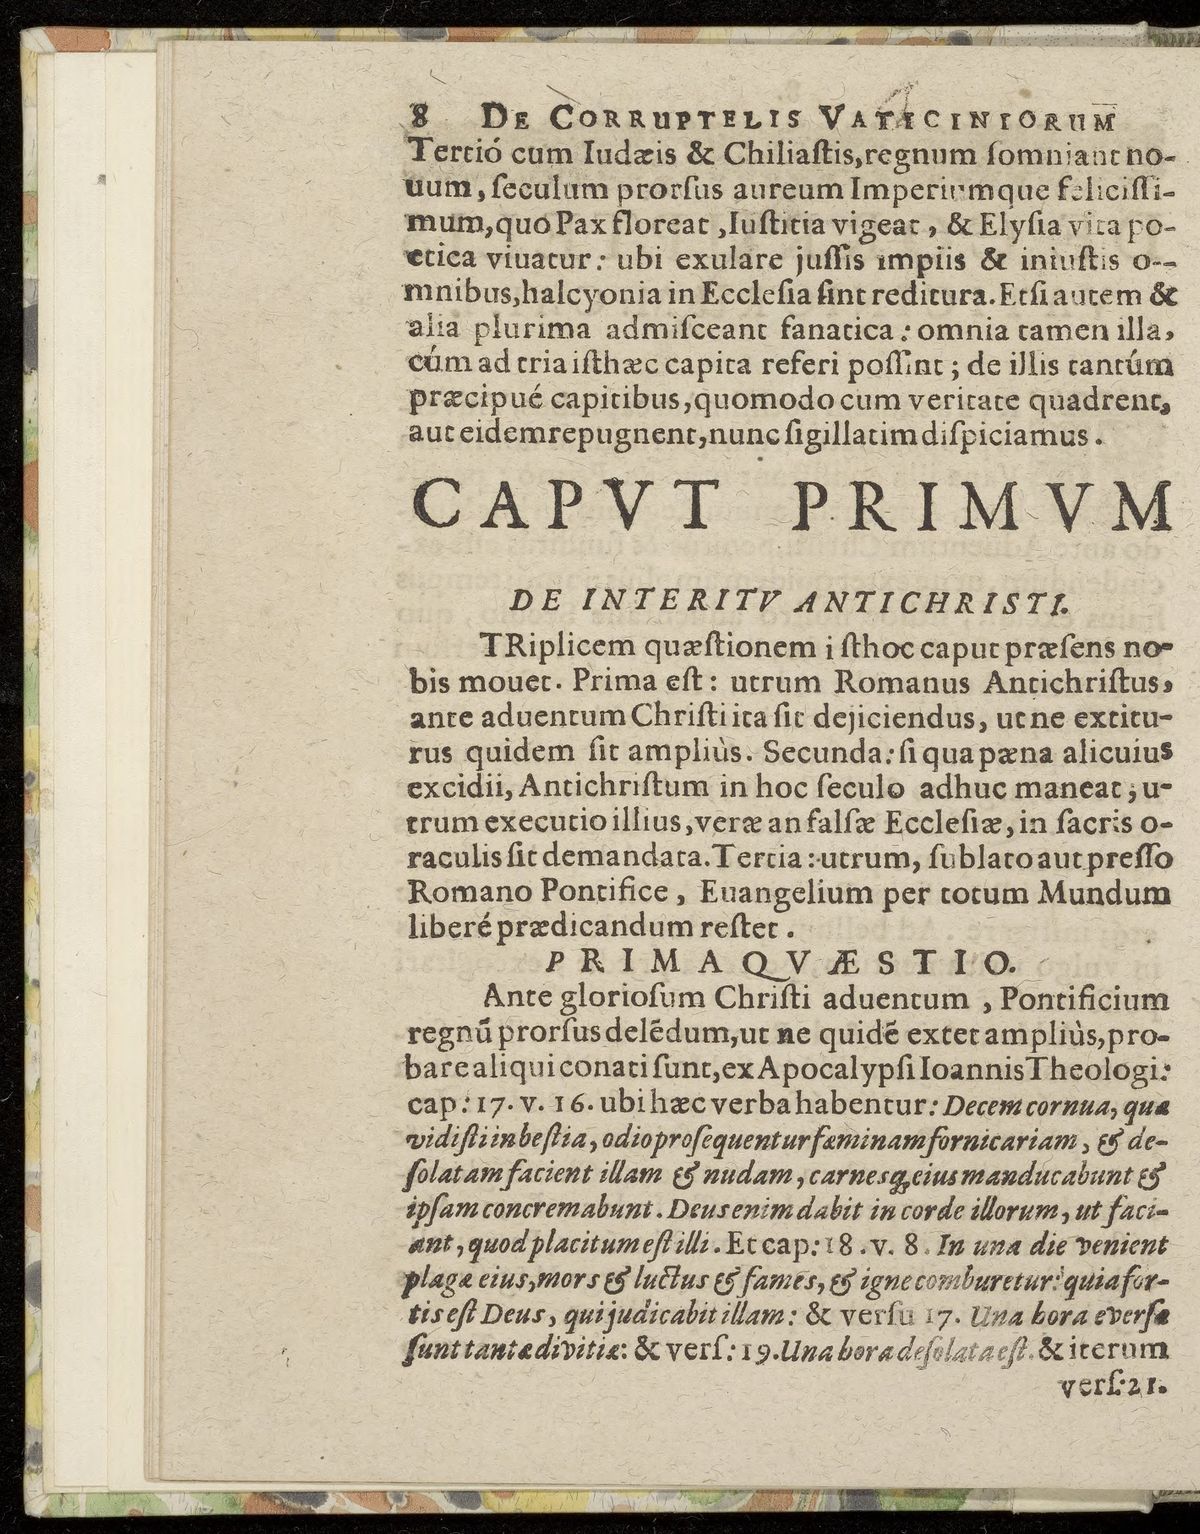 8 DE CORRUPTELIS VATICINIORUM
Tertió cum Iudæis & Chiliaſtis,regnum ſomniant no-
uum, ſeculum prorſus aureum Imperiumque feliciſſi-
mum,quo Pax floreat ,Iuſtitia vigeat , & Elyſia vita po-
etica viuatur: ubi exulare juſſis impiis & iniuſtis o--
mnibus,halcyonia in Eccleſia ſint reditura. Etſi autem &
alia plurima admiſceant fanatica : omnia tamen illa,
cúm ad tria iſthæc capita referi poſſint ; de illis tantúm
præcipué capitibus,quomodo cum veritate quadrent,
aut eidem repugnent,nunc ſigillatim diſpiciamus .
CAPVT PRIMVM
DE INTERITV ANTICHRISTI.
TRiplicem quæſtionem i ſthoc caput præſens no-
bis mouet. Prima eſt : utrum Romanus Antichriſtus,
ante aduentum Chriſti ita ſit dejiciendus, ut ne extitu-
rus quidem ſit ampliùs. Secunda: ſi qua pæna alicuius
excidii, Antichriſtum in hoc ſeculo adhuc maneat ; u-
trum executio illius,veræ an falſæ Eccleſiæ, in ſacris o-
raculis ſit demandata. Tertia : utrum, ſublato aut preſſo
Romano Pontifice , Euangelium per totum Mundum
liberé prædicandum reſtet .
PRIMA QVÆSTIO.
Ante glorioſum Chriſti aduentum , Pontificium
regnū prorſus delēdum,ut ne quidē extet ampliùs,pro-
bare aliqui conati ſunt,ex Apocalypſi Ioannis Theologi:
cap: 17. v. 16. ubi hæc verba habentur: Decem cornua, quæ
vidiſti in beſtia, odio proſequentur fæminam fornicariam, & de-
ſolatam facient illam & nudam, carnesq; eius manducabunt &
ipſam concremabunt. Deus enim dabit in corde illorum, ut faci-
ant, quod placitum eſt illi. Et cap: 18. v. 8. In una die venient
plagæ eius,mors & luctus & fames, & igne comburetur: quia for-
tis eſt Deus, qui judicabit illam: & verſu 17. Una hora everſæ
ſunt tantæ divitiæ: & verſ: 19. Una hora deſolata eſt. & iterum
verſ:21.